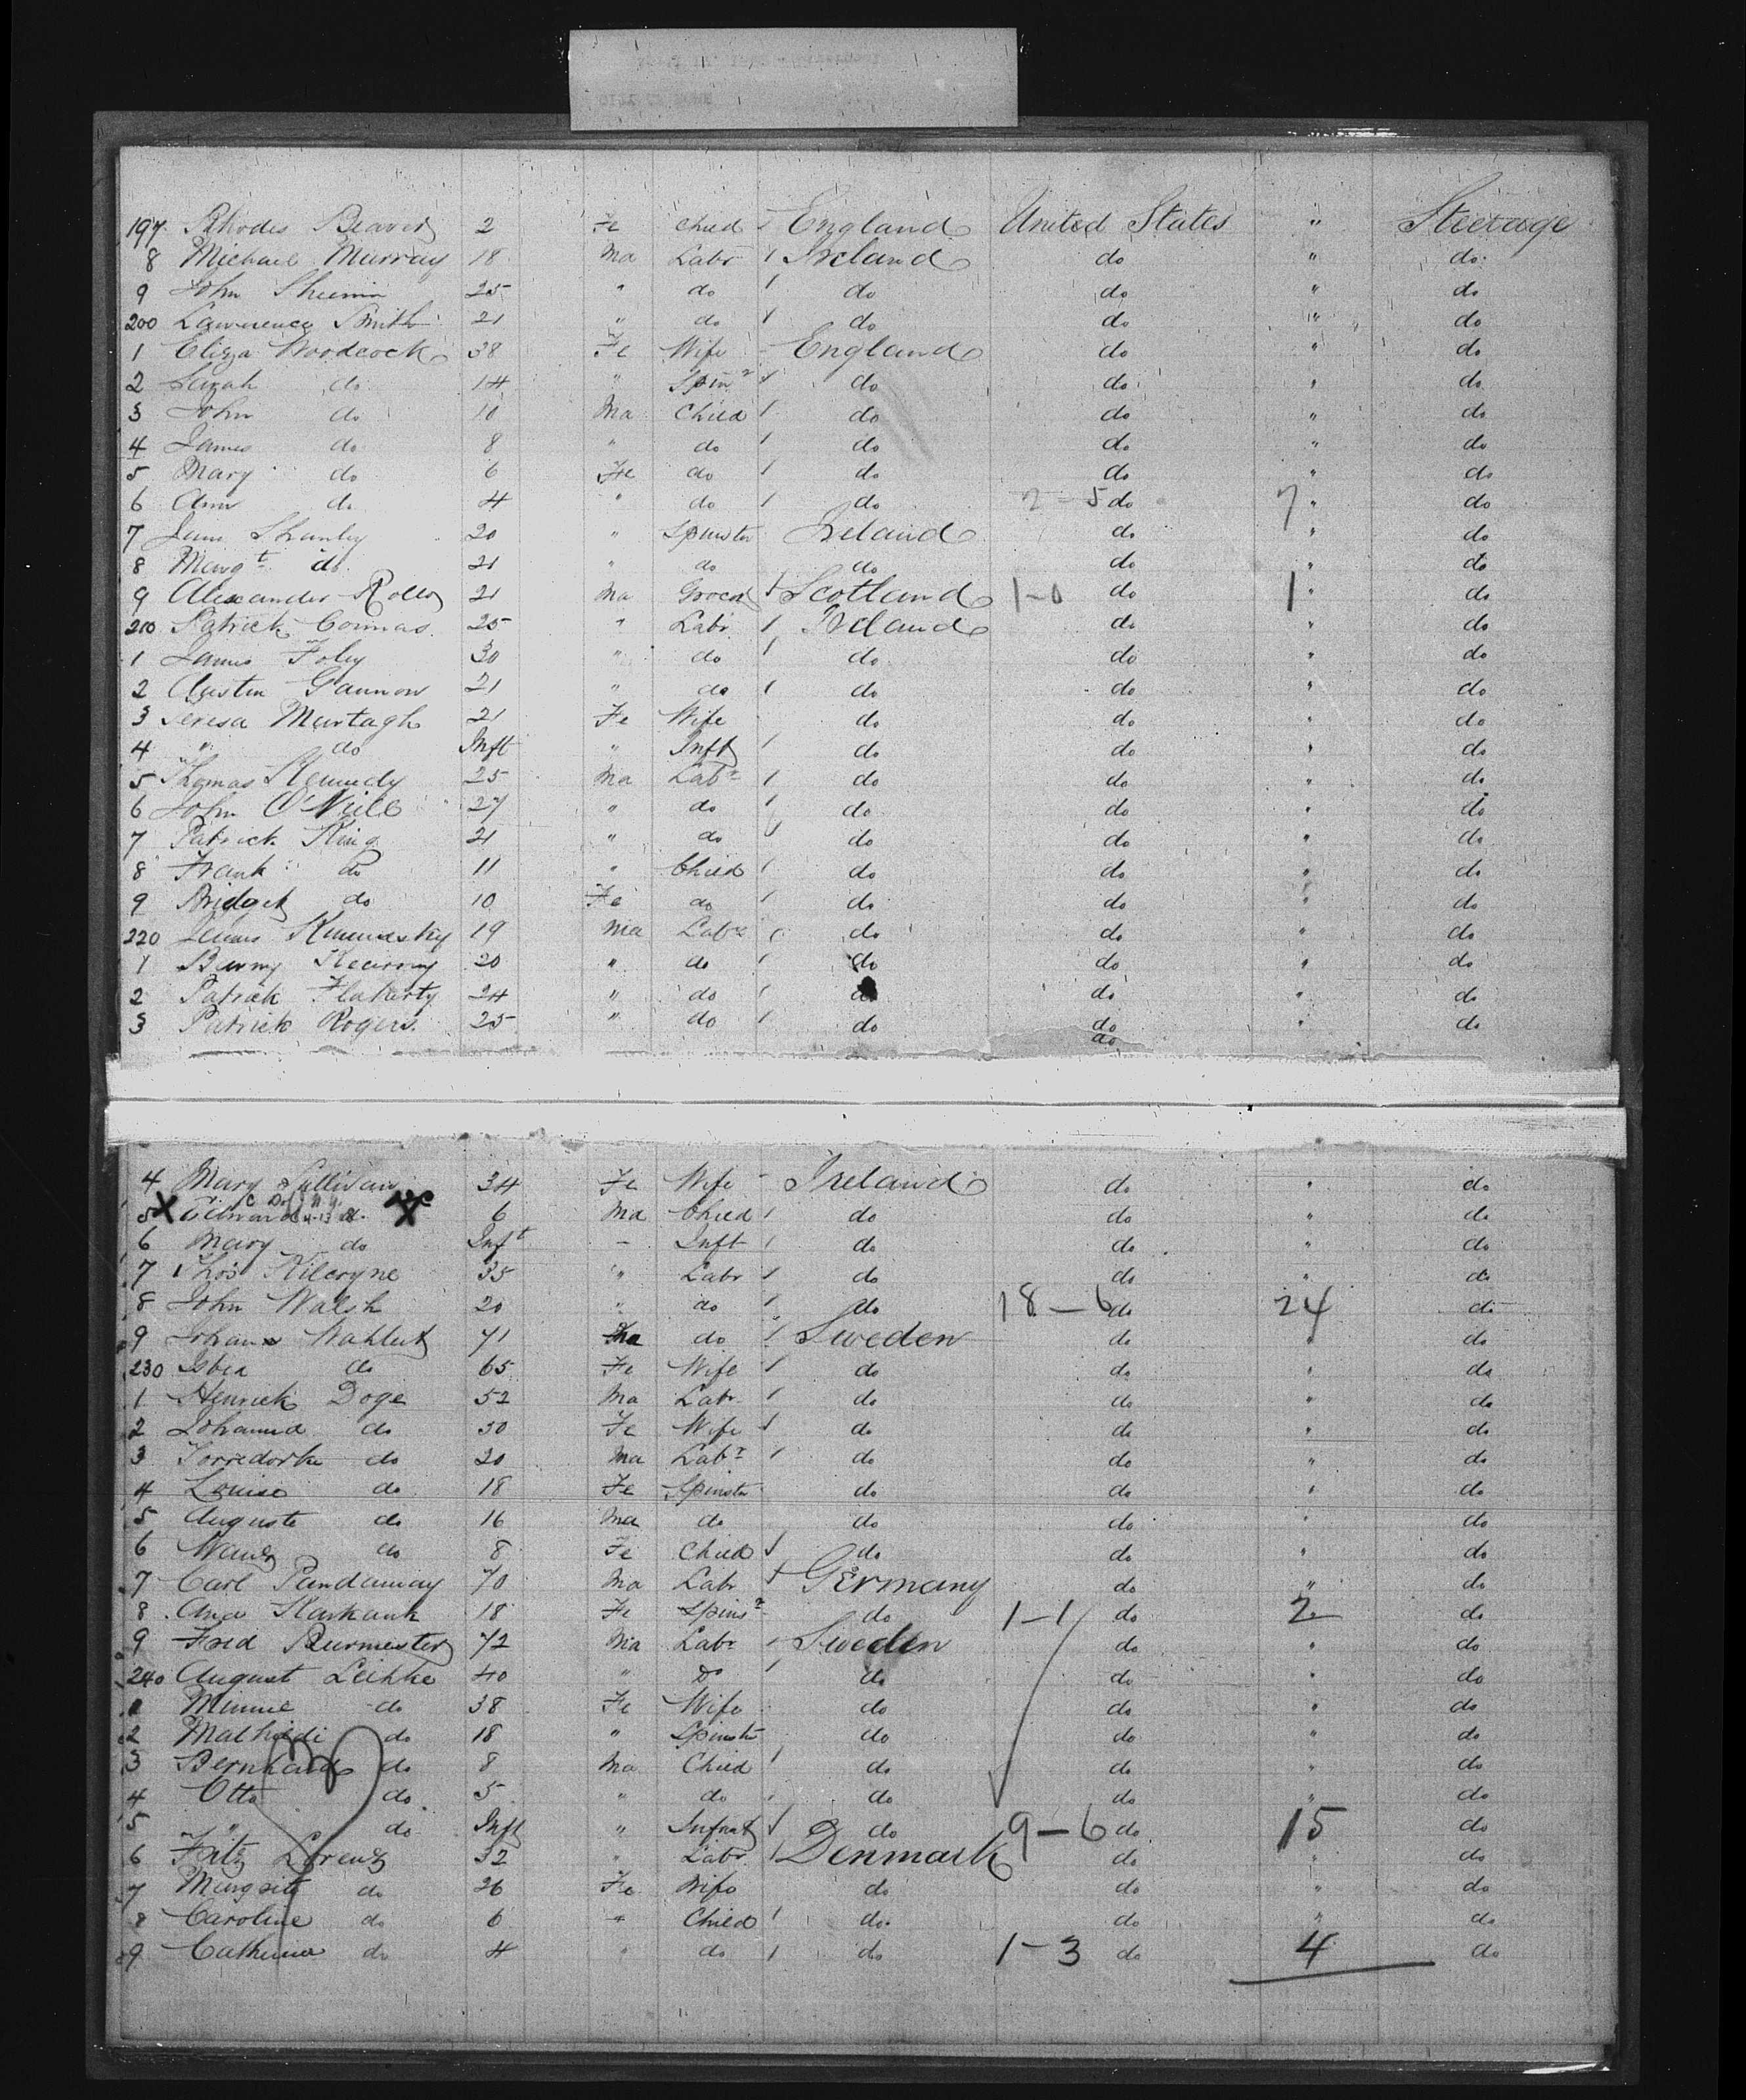 197 Rhodes Beaver 2 Fe Child England United States " Steerage
8 Michael Murray 18 Ma Labr Ireland do " do
9 John 25 " do do do " do
200 Lawrence Smith 21 " do do do " do
1 Eliza Woodcock 38 Fe Wife England do " do
2 Sarah do 14 " Spinr do do " do
3 John do 10 Ma Child do do " do
4 James do 8 " do do do " do
5 Mary do 6 Fe do do do " do
6 Ann do 4 " do do 2-5 do 7 " do
7 Jane Shanley 20 " Spinster Ireland do " do
8 Margt do 21 " do do do " do
9 Alexander Rollo 21 Ma Grocer Scotland 1-0 do 1 " do
210 Patrick 25 " Labr Ireland do " do
1 James Foley 30 " do do do " do
2 Austin Gannon 21 " do do do " do
3 Teresa Murtagh 21 Fe Wife do do " do
4 " do Inft " Inft do do " do
5 Thomas Kennedy 25 Ma Labr do do " do
6 John O'Neill 27 " do do do " do
7 Patrick King 21 " do do do " do
8 Frank do 11 " Child do do " do
9 Bridget do 10 Fe do do do " do
220 19 Ma Labr do do " do
1 20 " do do do " do
2 Patrick Flaherty 24 " do do do " do
3 Patrick Rogers 25 " do do do " do
do
4 Mary Sullivan 34 Fe Wife Ireland do " do
5 X Edward do X 6 Ma Child do do " do
6 Mary do Inft - Inft do do " do
7 Thos Kilcoyne 35 " Labr do do " do
8 John Walsh 20 " do do 18-6 do 24 do
9 71 Ma do Sweden do " do
230 do 65 Fe Wife do do " do
1 Henrick Doge 52 Ma Labr do do " do
2 Johanna do 50 Fe Wife do do " do
3 do 20 Ma Labr do do " do
4 Louise do 18 Fe Spinstr do do " do
5 Auguste do 16 Ma do do do " do
6 do 8 Fe Child do do " do
7 Carl 70 Ma Labr Germany do " do
8 18 Fe Spinsr do 1-1 do 2 do
9 Fred Burmester 72 Ma Labr Sweden do " do
240 August Leihke 40 " Do do do " do
1 Minnie do 38 Fe Wife do do " do
2 Mathildi do 18 " Spinstr do do " do
3 Bernhard do 8 Ma Child do do " do
4 Otto do 5 " do do do " do
5 " do Inft " Infant do 9-6 do 15 do
6 Fritz Lorentz 32 " Labr Denmark do " do
7 do 26 Fe Wife do do " do
8 Caroline do 6 " Child do do " do
9 Catherina do 4 " do do 1-3 do 4 do